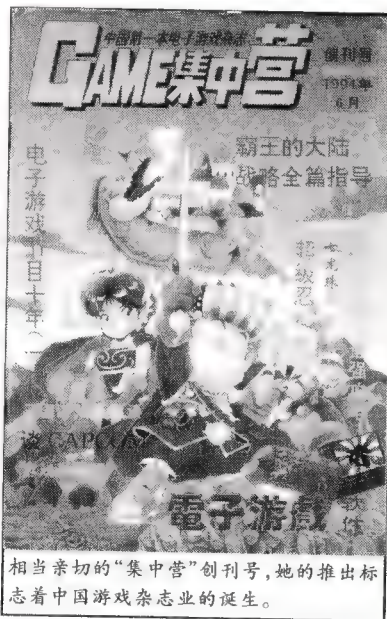 中国第一本电子游戏杂志
GAME集中营
创刊号
1994年
6月
霸王的大陆
战略全篇指导
电子游戏
七龙珠
超级
谈CAPCOM
電子游戲
软件
相当亲切的“集中营”创刊号，她的推出标
志着中国游戏杂志业的诞生。